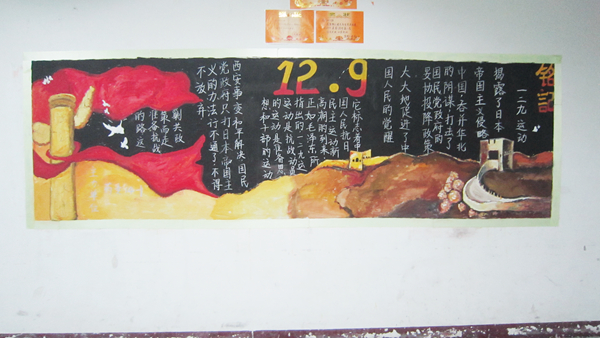 铭记
一二九运动
揭露了日本
帝国主义侵略
中国,吞并华北
的阴谋,打击了
国民党政府的
妥协投降政策
大大地促进了中
国人民的觉醒
12.9
它标志着中
国人民抗日
民主运动新
高潮的到来
正如毛泽东所
指出的一二九运
运动是抗战动员
的运动是准备思
想和干部的运动
西安事变和平解决,国民
党政府只打日本帝国主
义的办法行不通了,不得
不放弃
剿共政
策而走
准备抗战
的路运